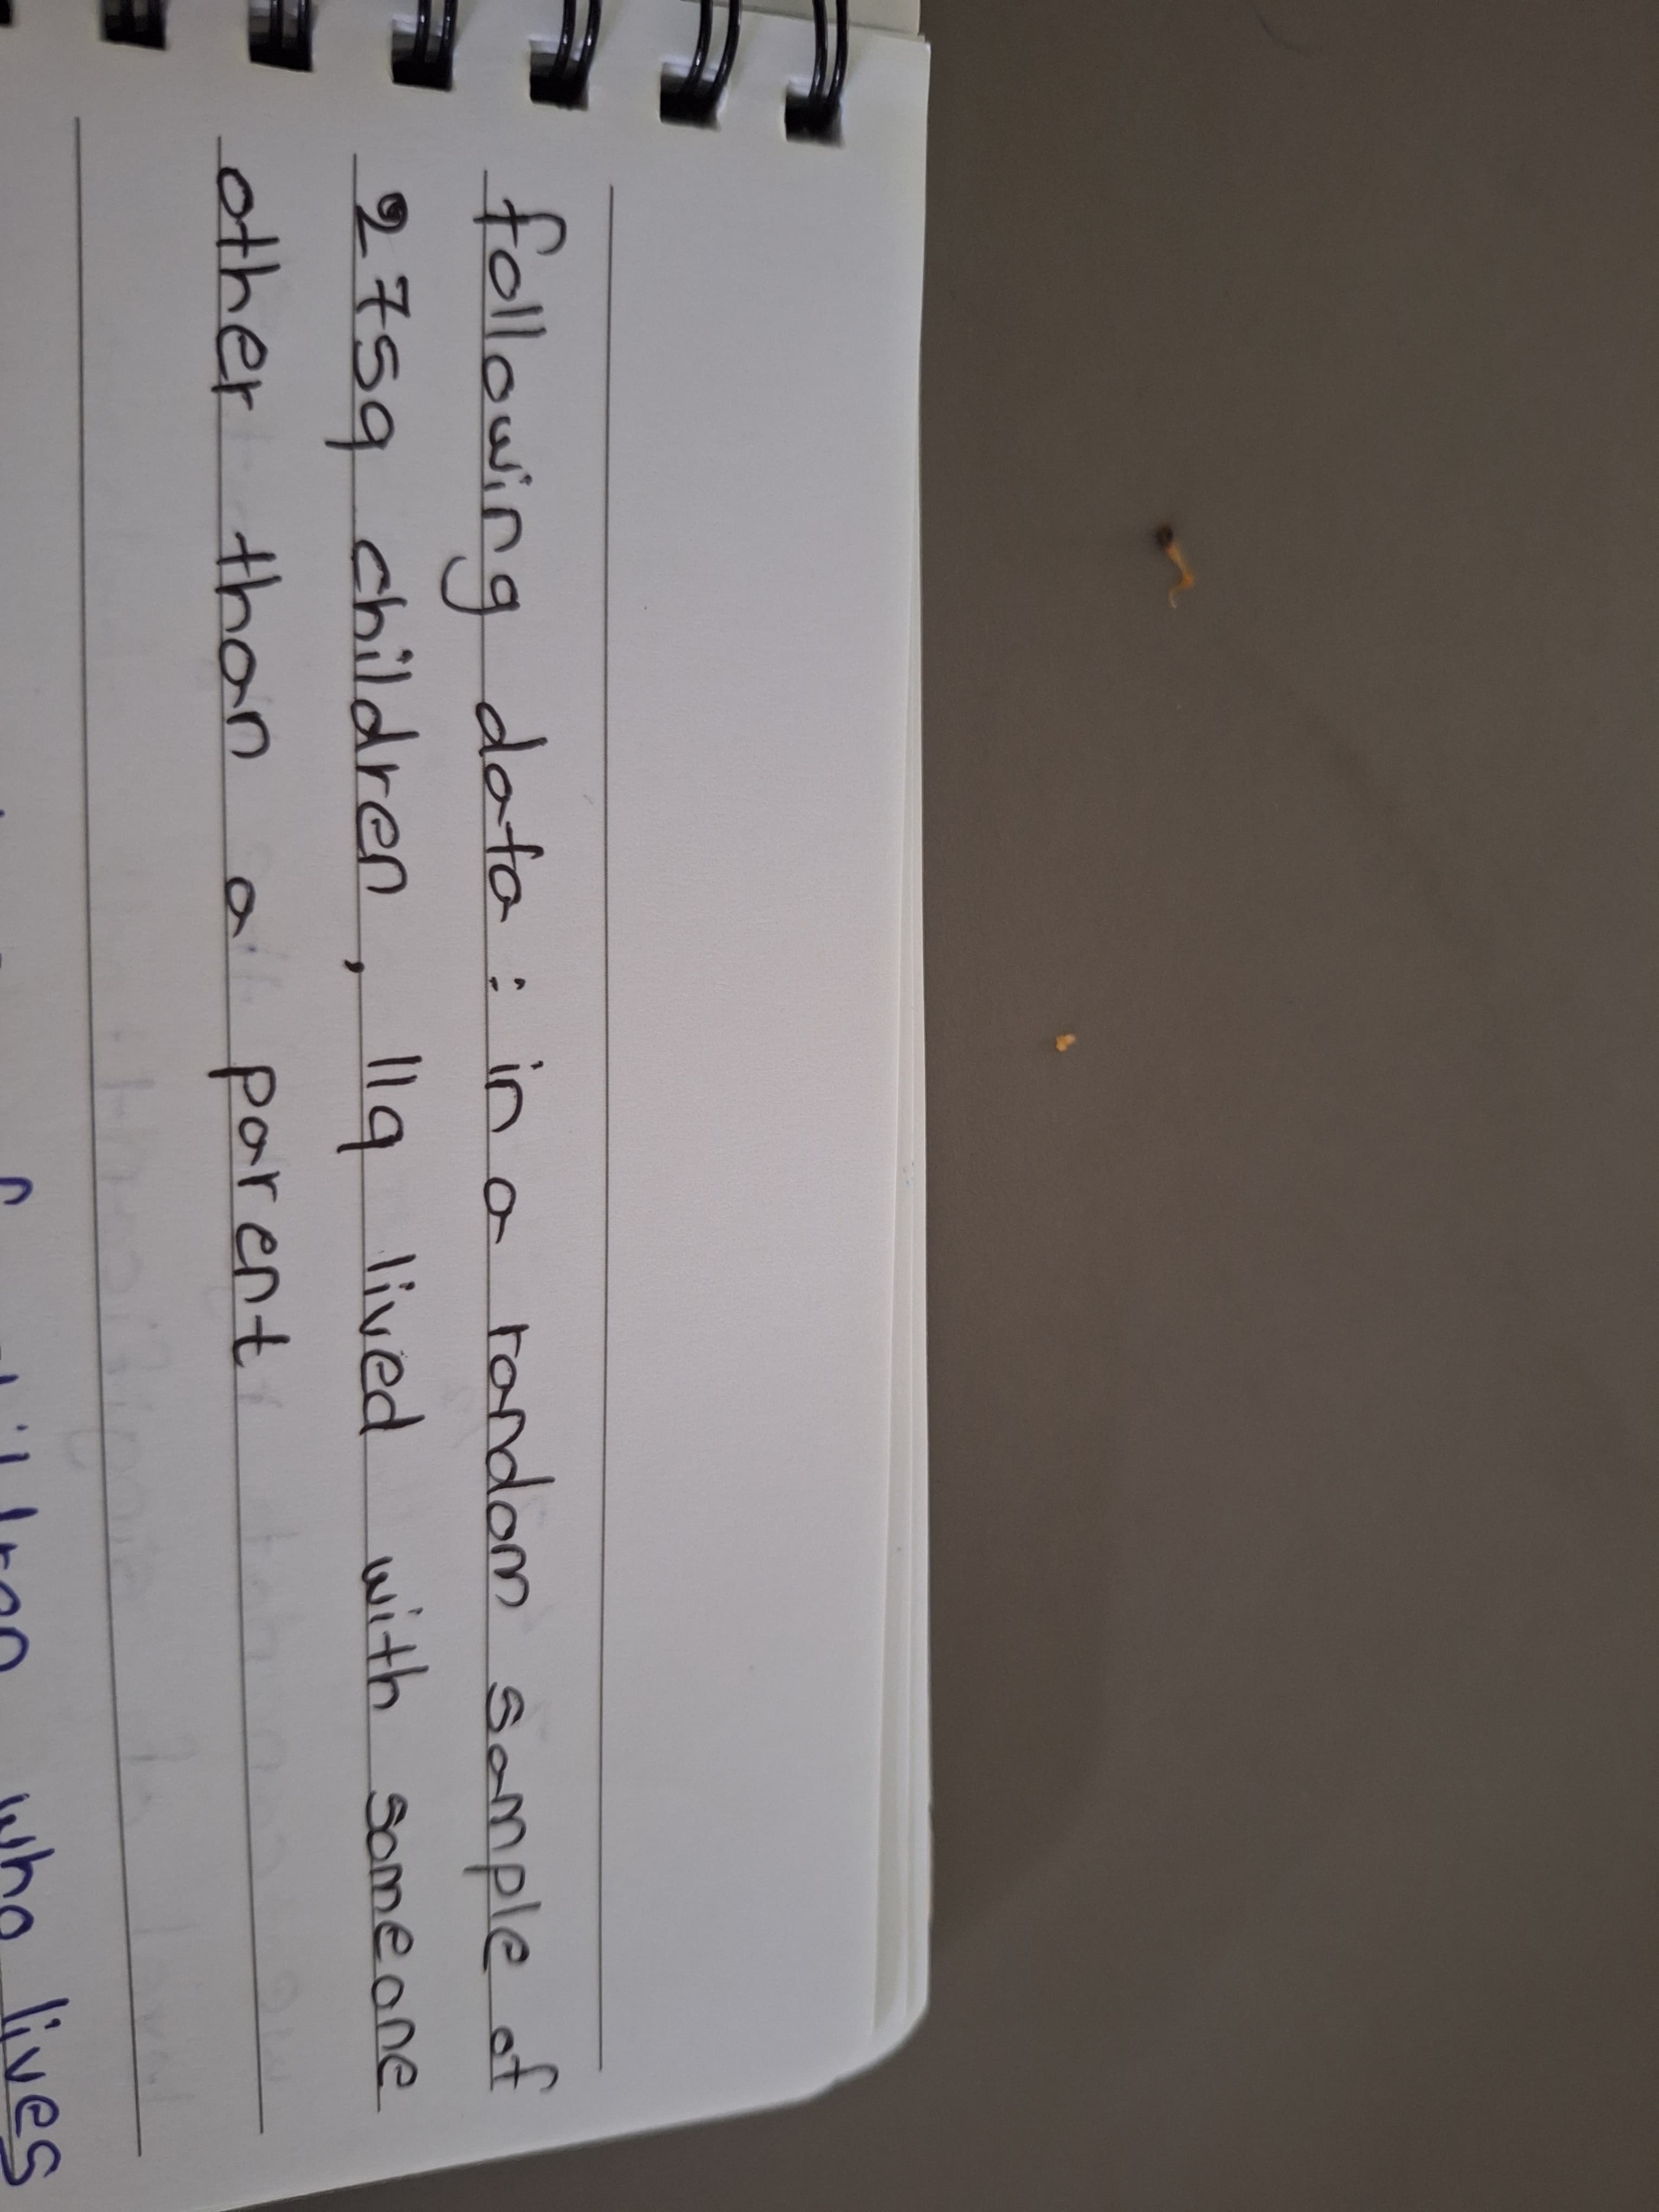 following data : in a random sample of
2759 children , 119 lived with someone
other than a parent
who lives